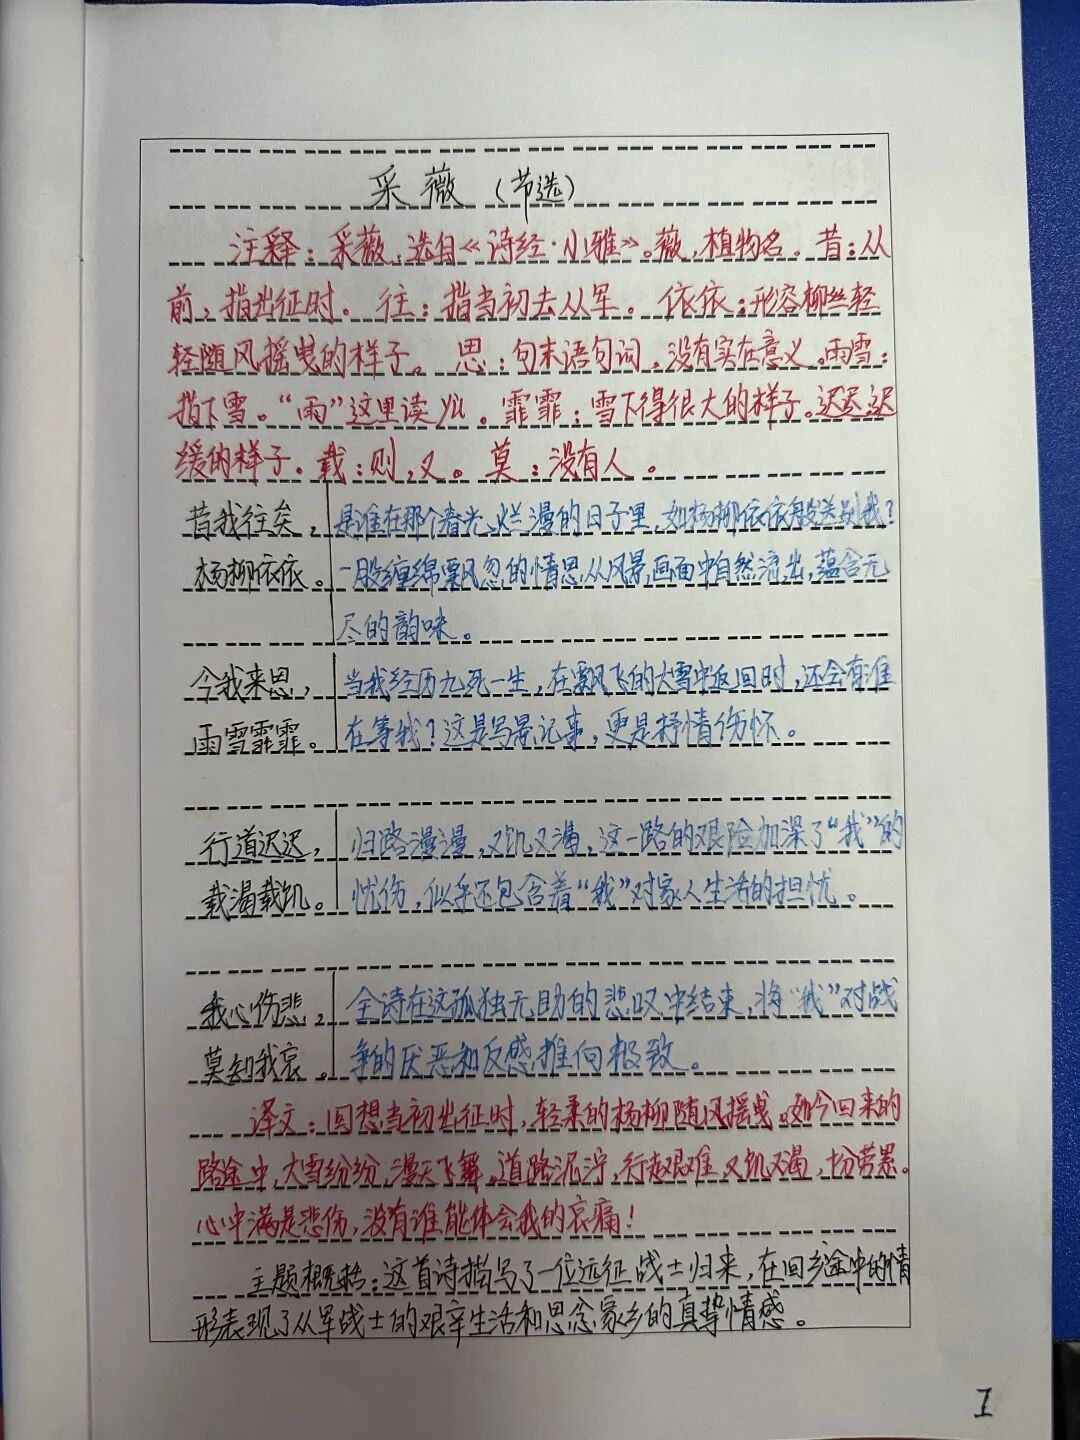 采薇（节选）
注释：采薇，选自《诗经·小雅》。薇，植物名。昔：从
前，指出征时。往：指当初去从军。依依：形容柳丝轻
轻随风摇曳的样子。思：句末语句词，没有实在意义。雨雪：
指下雪。“雨”这里读yù。霏霏：雪下得很大的样子。迟迟：迟
缓的样子。载：则，又。莫：没有人。
昔我往矣，
杨柳依依。
是谁在那个春光烂漫的日子里，如杨柳依依般送别我？
一股缠绵飘忽的情思从风景画面中自然流出，蕴含无
尽的韵味。
今我来思，
雨雪霏霏。
当我经历九死一生，在飘飞的大雪中返回时，还会有谁
在等我？这是写景记事，更是抒情伤怀。
行道迟迟，
载渴载饥。
归路漫漫，又饥又渴，这一路的艰险加深了“我”的
忧伤，似乎还包含着“我”对家人生活的担忧。
我心伤悲，
莫知我哀。
全诗在这孤独无助的悲叹中结束，将“我”对战
争的厌恶和反感推向极致。
译文：回想当初出征时，轻柔的杨柳随风摇曳。如今回来的
路途中，大雪纷纷，漫天飞舞。道路泥泞，行走艰难，又饥又渴，十分劳累。
心中满是悲伤，没有谁能体会我的哀痛！
主题概括：这首诗描写了一位远征战士归来，在回乡途中的情
形表现了从军战士的艰辛生活和思念家乡的真挚情感。
1